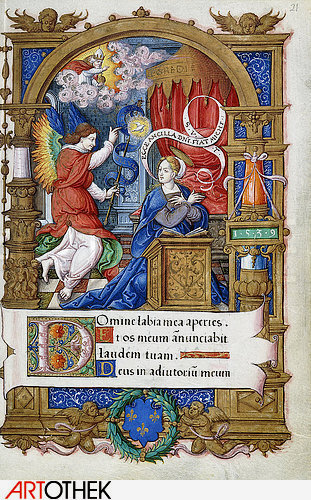 21
ECCE ANCILLA DNI. FIAT MICHI
1539
Domine labia mea aperies.
Et os meum anunciabit
laudem tuam.
Deus in adiutoriū meum
ARTOTHEK